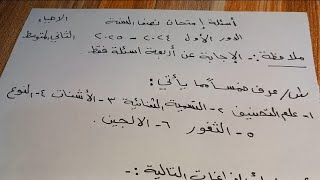 أسئلة إمتحان نصف السنة الاحياء
الدور الأول ٢٠٢٤ - ٢٠٢٥ الثاني المتوسط
ملاحظة :- الإجابة عن أربعة اسئلة فقط
س١/ عرف خمساً مما يأتي :
١- علم التصنيف ٢- التسمية الثنائية ٣- الأشنات ٤- النوع
٥- الثغور ٦- الالجين .
الفراغات التالية :-